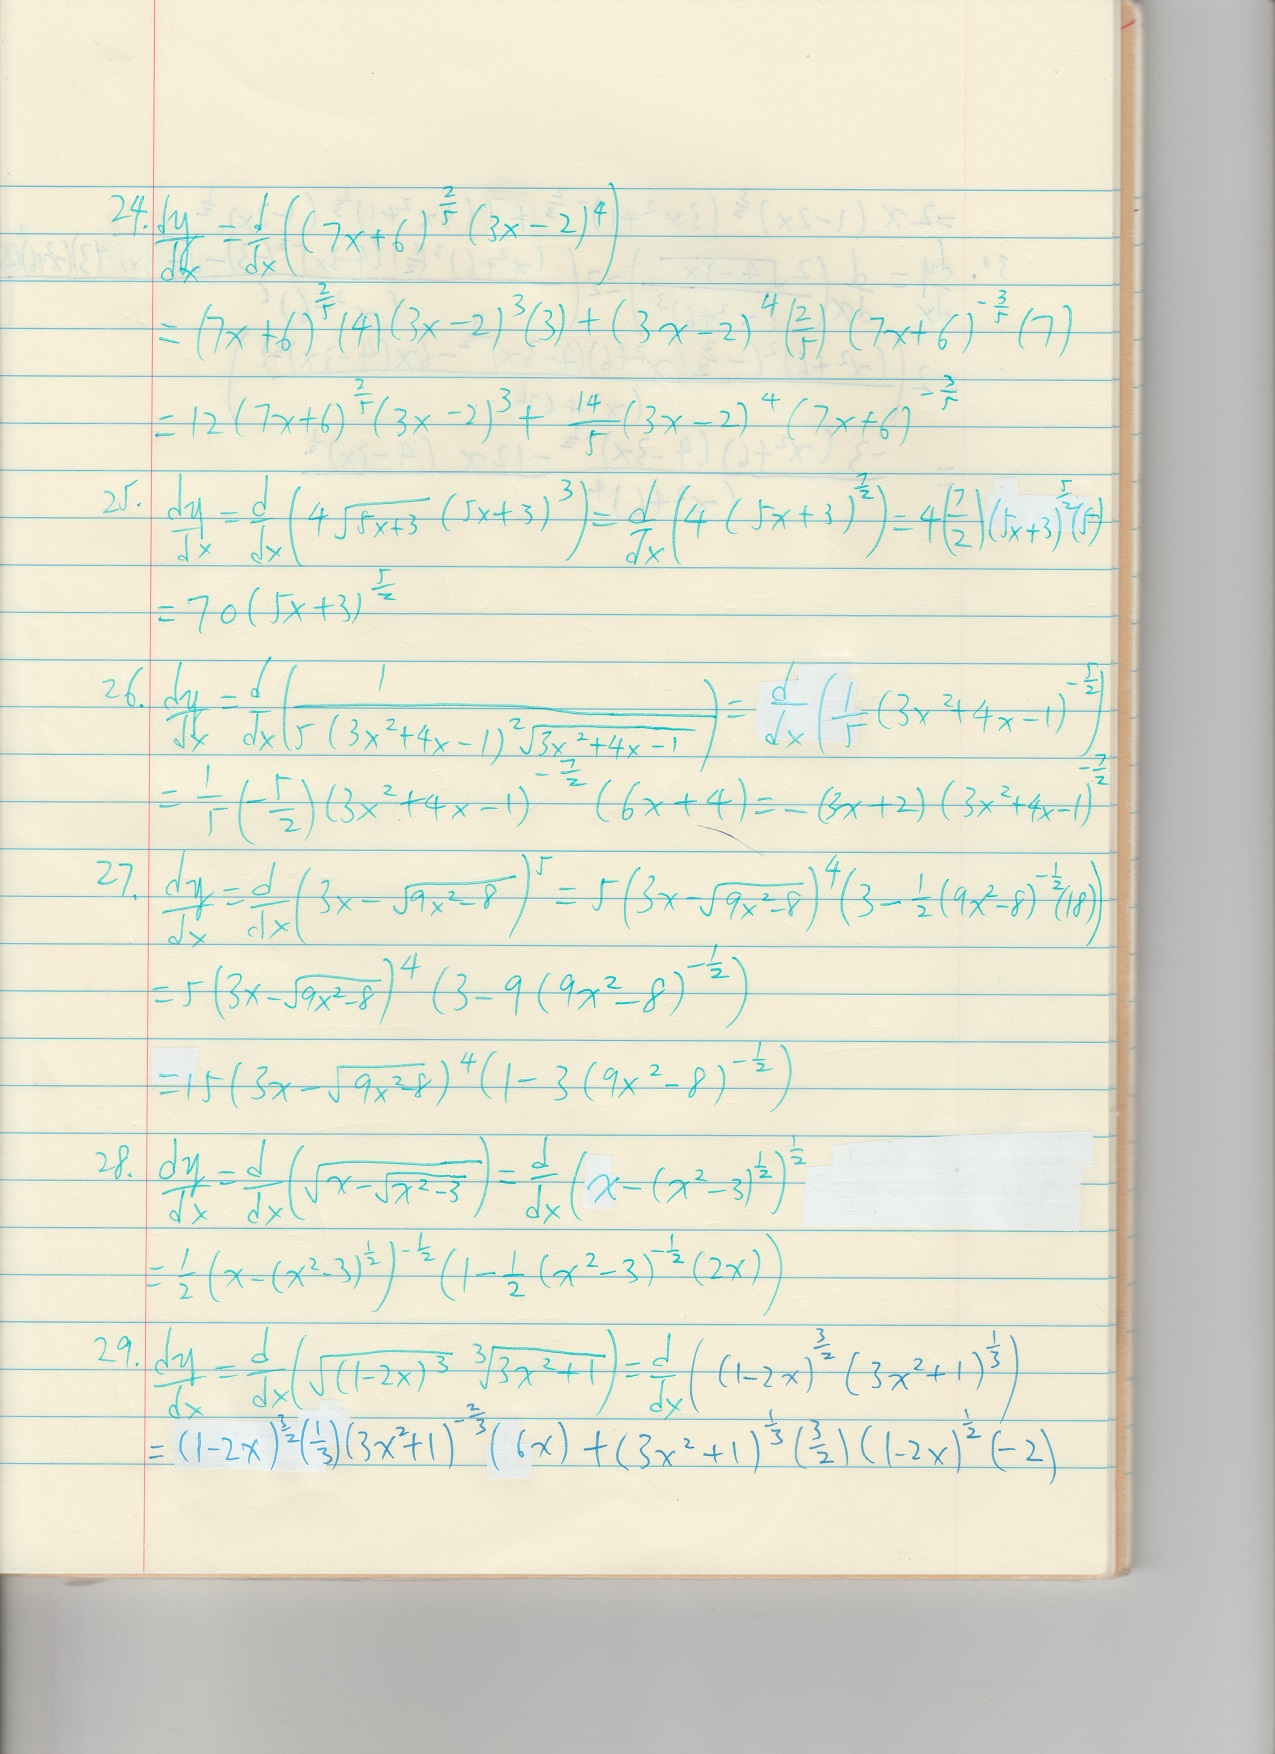 24. dy/dx = d/dx((7x+6)^(2/5) (3x-2)^4)
= (7x+6)^(2/5) (4)(3x-2)^3 (3) + (3x-2)^4 (2/5) (7x+6)^(-3/5) (7)
= 12(7x+6)^(2/5) (3x-2)^3 + 14/5 (3x-2)^4 (7x+6)^(-3/5)
25. dy/dx = d/dx(4√(5x+3) (5x+3)^3) = d/dx(4(5x+3)^(7/2)) = 4(7/2)(5x+3)^(5/2)(5)
= 70(5x+3)^(5/2)
26. dy/dx = d/dx(1/(5(3x²+4x-1)²√(3x²+4x-1))) = d/dx(1/5 (3x²+4x-1)^(-5/2))
= 1/5 (-5/2)(3x²+4x-1)^(-7/2) (6x+4) = -(3x+2)(3x²+4x-1)^(-7/2)
27. dy/dx = d/dx(3x-√(9x²-8))^5 = 5(3x-√(9x²-8))^4 (3-1/2(9x²-8)^(-1/2)(18))
= 5(3x-√(9x²-8))^4 (3-9(9x²-8)^(-1/2))
= 15(3x-√(9x²-8))^4 (1-3(9x²-8)^(-1/2))
28. dy/dx = d/dx(√(x-√(x²-3))) = d/dx(x-(x²-3)^(1/2))^(1/2)
= 1/2 (x-(x²-3)^(1/2))^(-1/2) (1-1/2(x²-3)^(-1/2)(2x))
29. dy/dx = d/dx(√((1-2x)^3) ∛(3x²+1)) = d/dx((1-2x)^(3/2) (3x²+1)^(1/3))
= (1-2x)^(3/2) (1/3)(3x²+1)^(-2/3) (6x) + (3x²+1)^(1/3) (3/2)(1-2x)^(1/2) (-2)